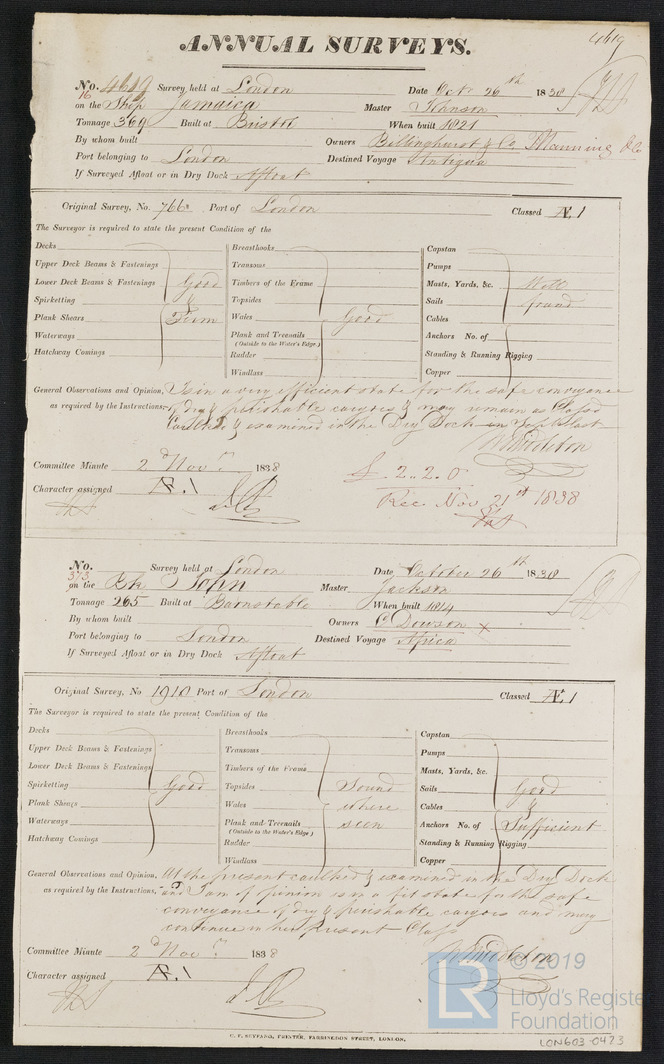 ANNUAL SURVEYS.
4619
No. 4619 Survey held at London Date Octr 26th 1838
16 on the Ship Jamaica Master Johnson
Tonnage 369 Built at Bristol When built 1821
By whom built Owners Billinghurst & Co Manning & Co
Port belonging to London Destined Voyage Antigua
If Surveyed Afloat or in Dry Dock Afloat
Original Survey, No. 766 Port of London Classed Æ 1
The Surveyor is required to state the present Condition of the
Decks
Upper Deck Beams & Fastenings
Lower Deck Beams & Fastenings Good
Spirketting &
Plank Shears Firm
Waterways
Hatchway Comings
Breasthooks
Transoms
Timbers of the Frame
Topsides
Wales Good
Plank and Treenails
(Outside to the Water's Edge.)
Rudder
Windlass
Capstan
Pumps
Masts, Yards, &c. Well
Sails found
Cables
Anchors No. of
Standing & Running Rigging
Copper
General Observations and Opinion, Is in a very efficient state for the safe conveyance
as required by the Instructions: of dry & perishable cargoes & may remain as Classed
Caulked & examined in the Dry Dock in Septr last
W Middleton
Committee Minute 2nd Novr. 1838
Character assigned Æ.1
£ 2.2.0
Rec. Nov 21st 1838
No. Survey held at London Date October 26th 1838
373 on the Bk John Master Jackson
Tonnage 265 Built at Barnstable When built 1814
By whom built Owners C Dowson x
Port belonging to London Destined Voyage Africa
If Surveyed Afloat or in Dry Dock Afloat
Original Survey, No 1910 Port of London Classed Æ 1
The Surveyor is required to state the present Condition of the
Decks
Upper Deck Beams & Fastenings
Lower Deck Beams & Fastenings
Spirketting Good
Plank Shears
Waterways
Hatchway Comings
Breasthooks
Transoms
Timbers of the Frame
Topsides Sound
Wales where
Plank and Treenails seen
(Outside to the Water's Edge.)
Rudder
Windlass
Capstan
Pumps
Masts, Yards, &c.
Sails Good
Cables &
Anchors No. of Sufficient
Standing & Running Rigging
Copper
General Observations and Opinion, At the present caulked & examined in the Dry Dock
as required by the Instructions, and I am of opinion is in a fit state for the safe
conveyance of dry & perishable cargoes and may
continue in her present Class
W Middleton
Committee Minute 2nd Novr. 1838
Character assigned Æ.1
LR © 2019
Lloyd's Register
Foundation
C. F. SEYFANG, PRINTER, FARRINGDON STREET, LONDON.
LON603-0423